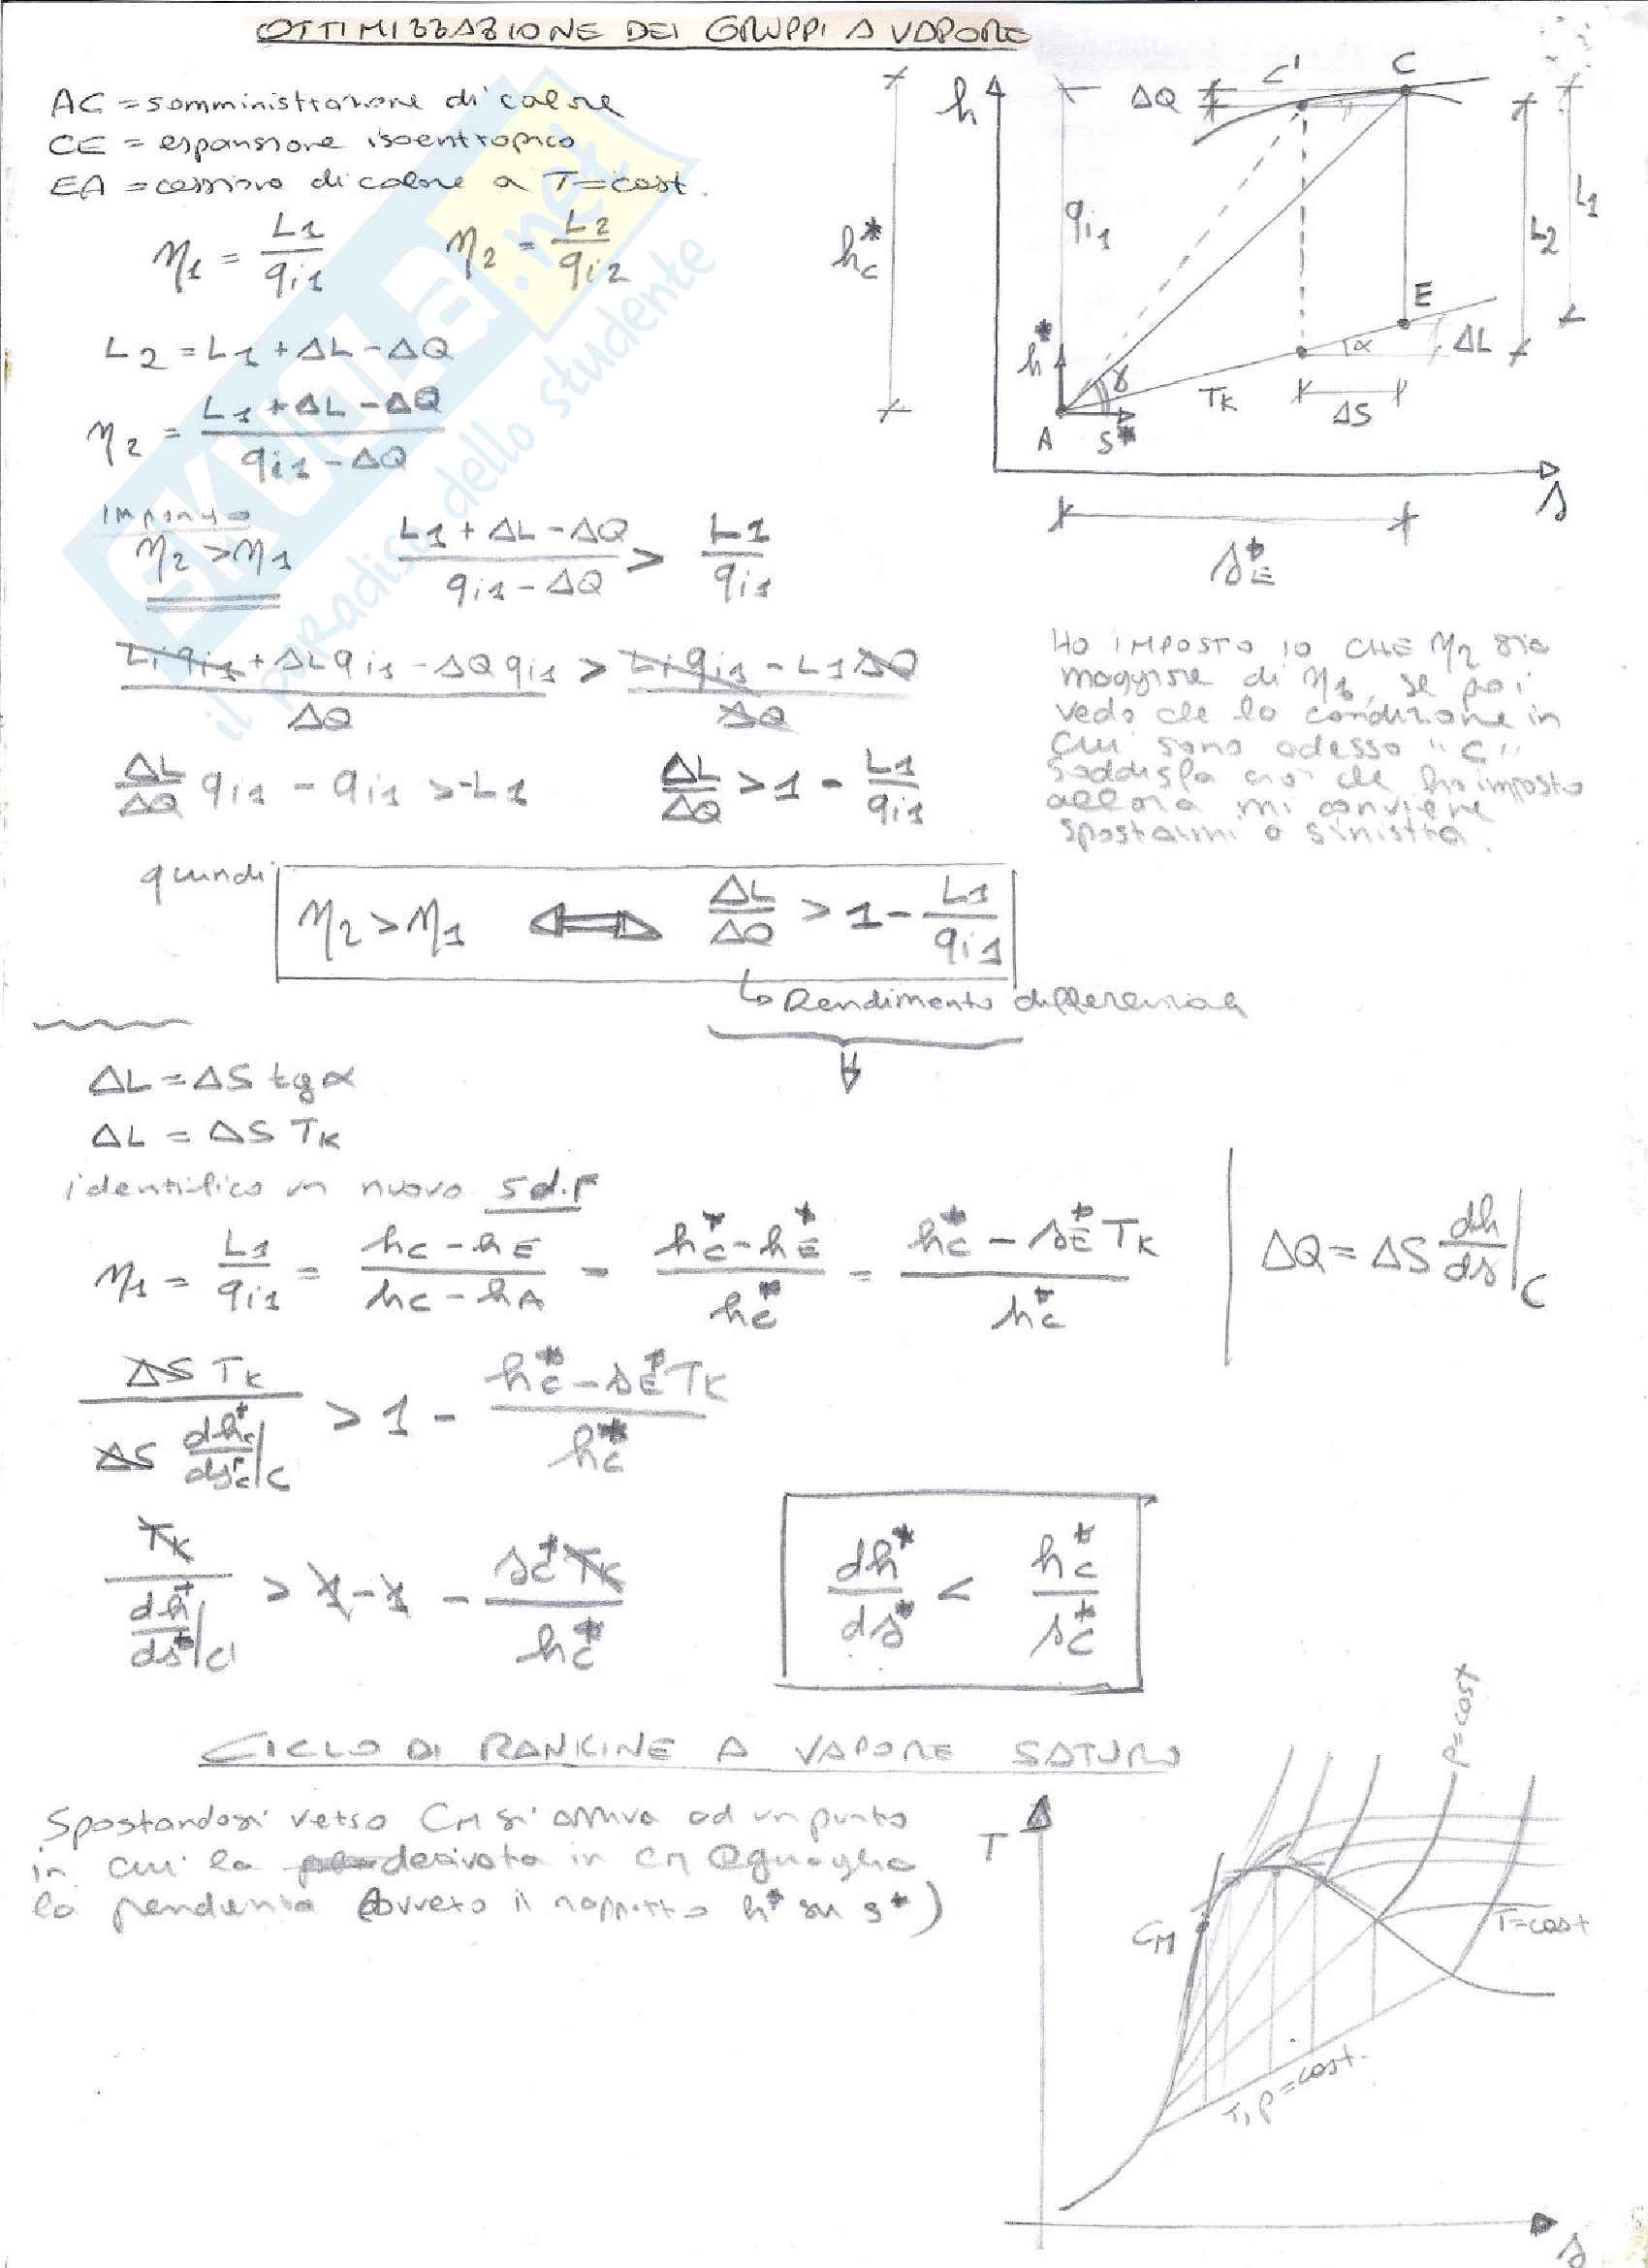 OTTIMIZZAZIONE DEI GRUPPI A VAPORE
AC = somministrazione di calore
CE = espansione isoentropica
EA = cessione di calore a T=cost.
η1 = L1/qi1    η2 = L2/qi2
L2 = L1 + ΔL - ΔQ
η2 = (L1 + ΔL - ΔQ)/(qi1 - ΔQ)
Impongo
η2 > η1    (L1 + ΔL - ΔQ)/(qi1 - ΔQ) > L1/qi1
(L1 qi1 + ΔL qi1 - ΔQ qi1)/ΔQ > (L1 qi1 - L1 ΔQ)/ΔQ
ΔL/ΔQ qi1 - qi1 > -L1    ΔL/ΔQ > 1 - L1/qi1
quindi η2 > η1 ⟺ ΔL/ΔQ > 1 - L1/qi1
↳ Rendimento differenziale
h
ΔQ
C'
C
hc*
qi1
L2
L1
h*
γ
E
α
ΔL
TK
ΔS
A
S*
s
sE*
HO IMPOSTO IO CHE η2 sia
maggiore di η1, se poi
vedo che la condizione in
cui sono adesso "C"
soddisfa ciò che ho imposto
allora mi conviene
spostarmi a sinistra.
ΔL = ΔS tgα
ΔL = ΔS TK
identifico un nuovo S.d.r
η1 = L1/qi1 = (hC - hE)/(hC - hA) = (hC* - hE*)/hC* = (hC* - sE* TK)/hC*
ΔQ = ΔS dh/ds|C
ΔS TK/(ΔS dhC*/dsC*|C) > 1 - (hC* - sE* TK)/hC*
TK/(dh*/ds*|C) > 1 - 1 - sC* TK/hC*
dh*/ds* < hC*/sC*
CICLO DI RANKINE A VAPORE SATURO
Spostandosi verso CM si arriva ad un punto
in cui la derivata in CM eguaglia
la pendenza (ovvero il rapporto h* su s*)
T
P=cost
CM
T=cost
T, P=cost.
s